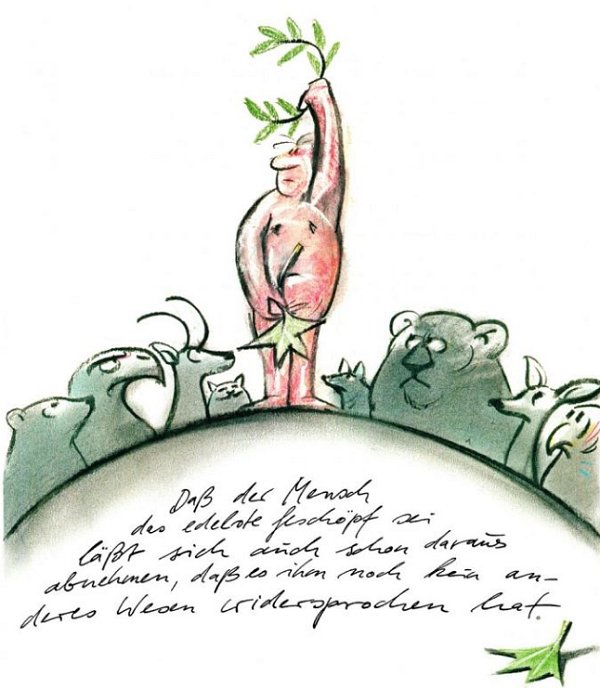 Daß der Mensch
das edelste Geschöpf sei
läßt sich auch schon daraus
abnehmen, daß es ihm noch kein an-
deres Wesen widersprochen hat.